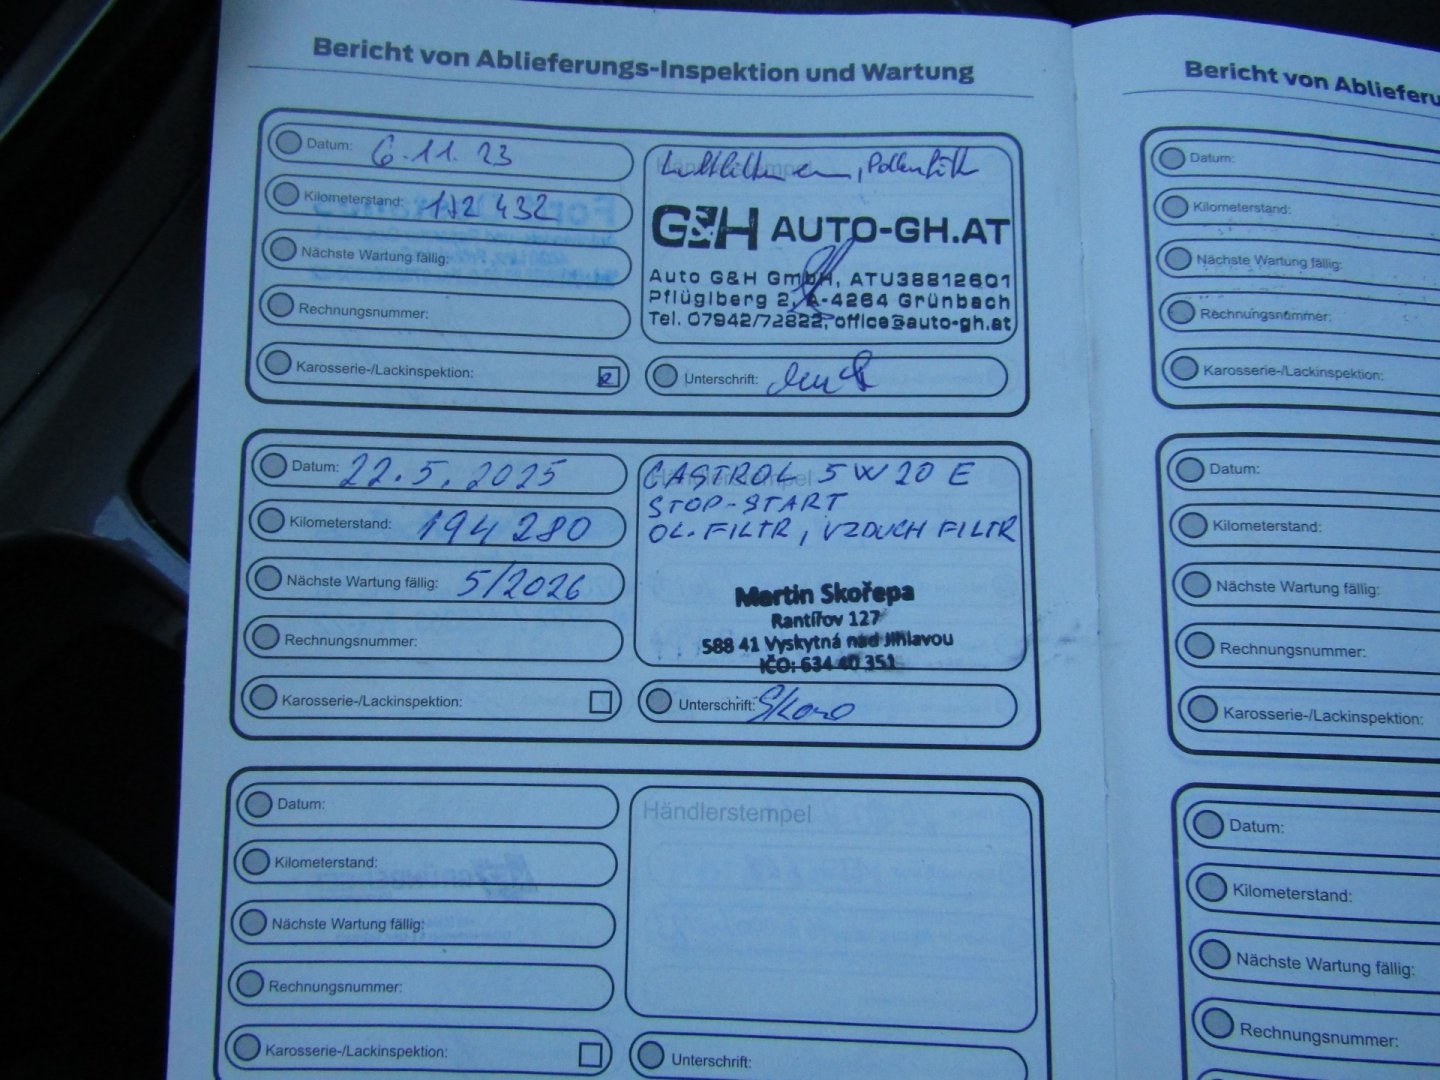 Bericht von Ablieferungs-Inspektion und Wartung
Datum: 6.11.23
Kilometerstand: 432
Nächste Wartung fällig:
Rechnungsnummer:
Karosserie-/Lackinspektion:
G&H AUTO-GH.AT
Auto G&H GmbH, ATU38812601
Pflüglberg 2, A-4264 Grünbach
Tel. 07942/72822, office@auto-gh.at
Unterschrift:
Datum: 22.5.2025
Kilometerstand: 194 280
Nächste Wartung fällig: 5/2026
Rechnungsnummer:
Karosserie-/Lackinspektion:
CASTROL 5W20 E
STOP-START
OL. FILTR, VZDUCH FILTR
Martin Skořepa
Rantířov 127
588 41 Vyskytná nad Jihlavou
IČO: 634 40 351
Unterschrift:
Datum:
Kilometerstand:
Nächste Wartung fällig:
Rechnungsnummer:
Karosserie-/Lackinspektion:
Händlerstempel
Unterschrift:
Bericht von Ablieferu
Datum:
Kilometerstand:
Nächste Wartung fällig:
Rechnungsnummer:
Karosserie-/Lackinspektion:
Datum:
Kilometerstand:
Nächste Wartung fällig:
Rechnungsnummer:
Karosserie-/Lackinspektion:
Datum:
Kilometerstand:
Nächste Wartung fällig:
Rechnungsnummer: